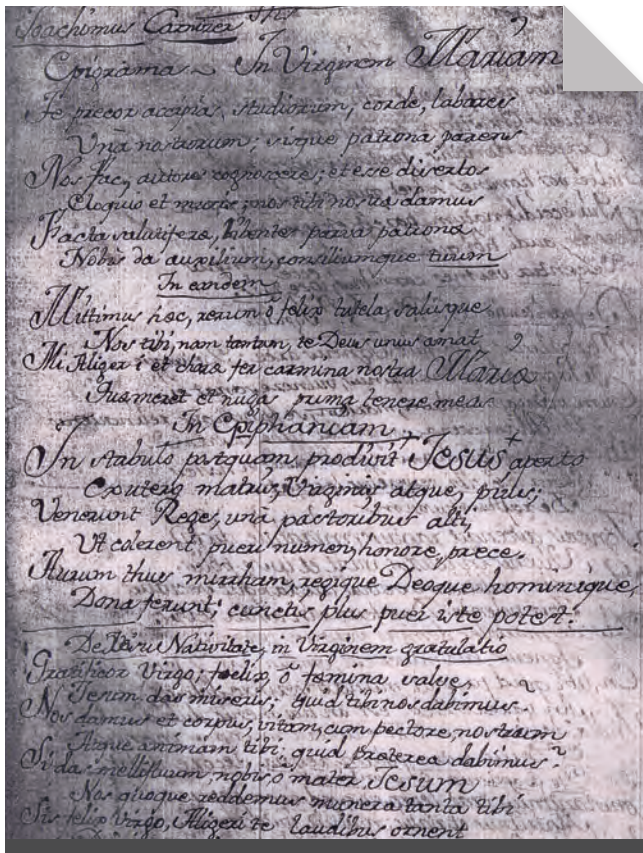 Joachimus Carnizer
Epigrama In Virginem Mariam
Te precor accipia, studiorum, corde, labores
Una nostrorum; sisque patrona parens
Nos fac, autores cognoscere; et esse disertos
Eloquio et nos tibi nostra damus
Facta salutifera, libenter parva patrona
Nobis da auxilium, consiliumque tuum
In eandem
Mittimus hoc, rerum ô felix tutela, salusque
Nos tibi, nam tantum, te Deus unus amat
Mi Aliger i et chara fer carmina nostra Maria
et nugas prima tenere meas
In Epiphaniam
In stabulo postquam prodivit Jesus aperto
Ex utero matris, Virginis atque, pius;
Venerunt Reges, unà pastoribus alti,
Ut colerent pueri numen, honore, prece.
Aurum thus mirrham, regique Deoque hominique,
Dona ferunt; cunctis plus puer iste potest.
De Xpti Nativitate, in Virginem gratulatio
Gratificor Virgo; foelix, ô femina salve,
Jesum das miseris; quid tibi nos dabimus.
Nos damus et corpus, vitam, cum pectore, nostrum
Atque animam tibi; quid preterea dabimus?
Si das mellifluum nobis ô mater Jesum
Nos quoque reddemus munera tanta tibi
Sis felix Virgo, Aligeri te laudibus ornent